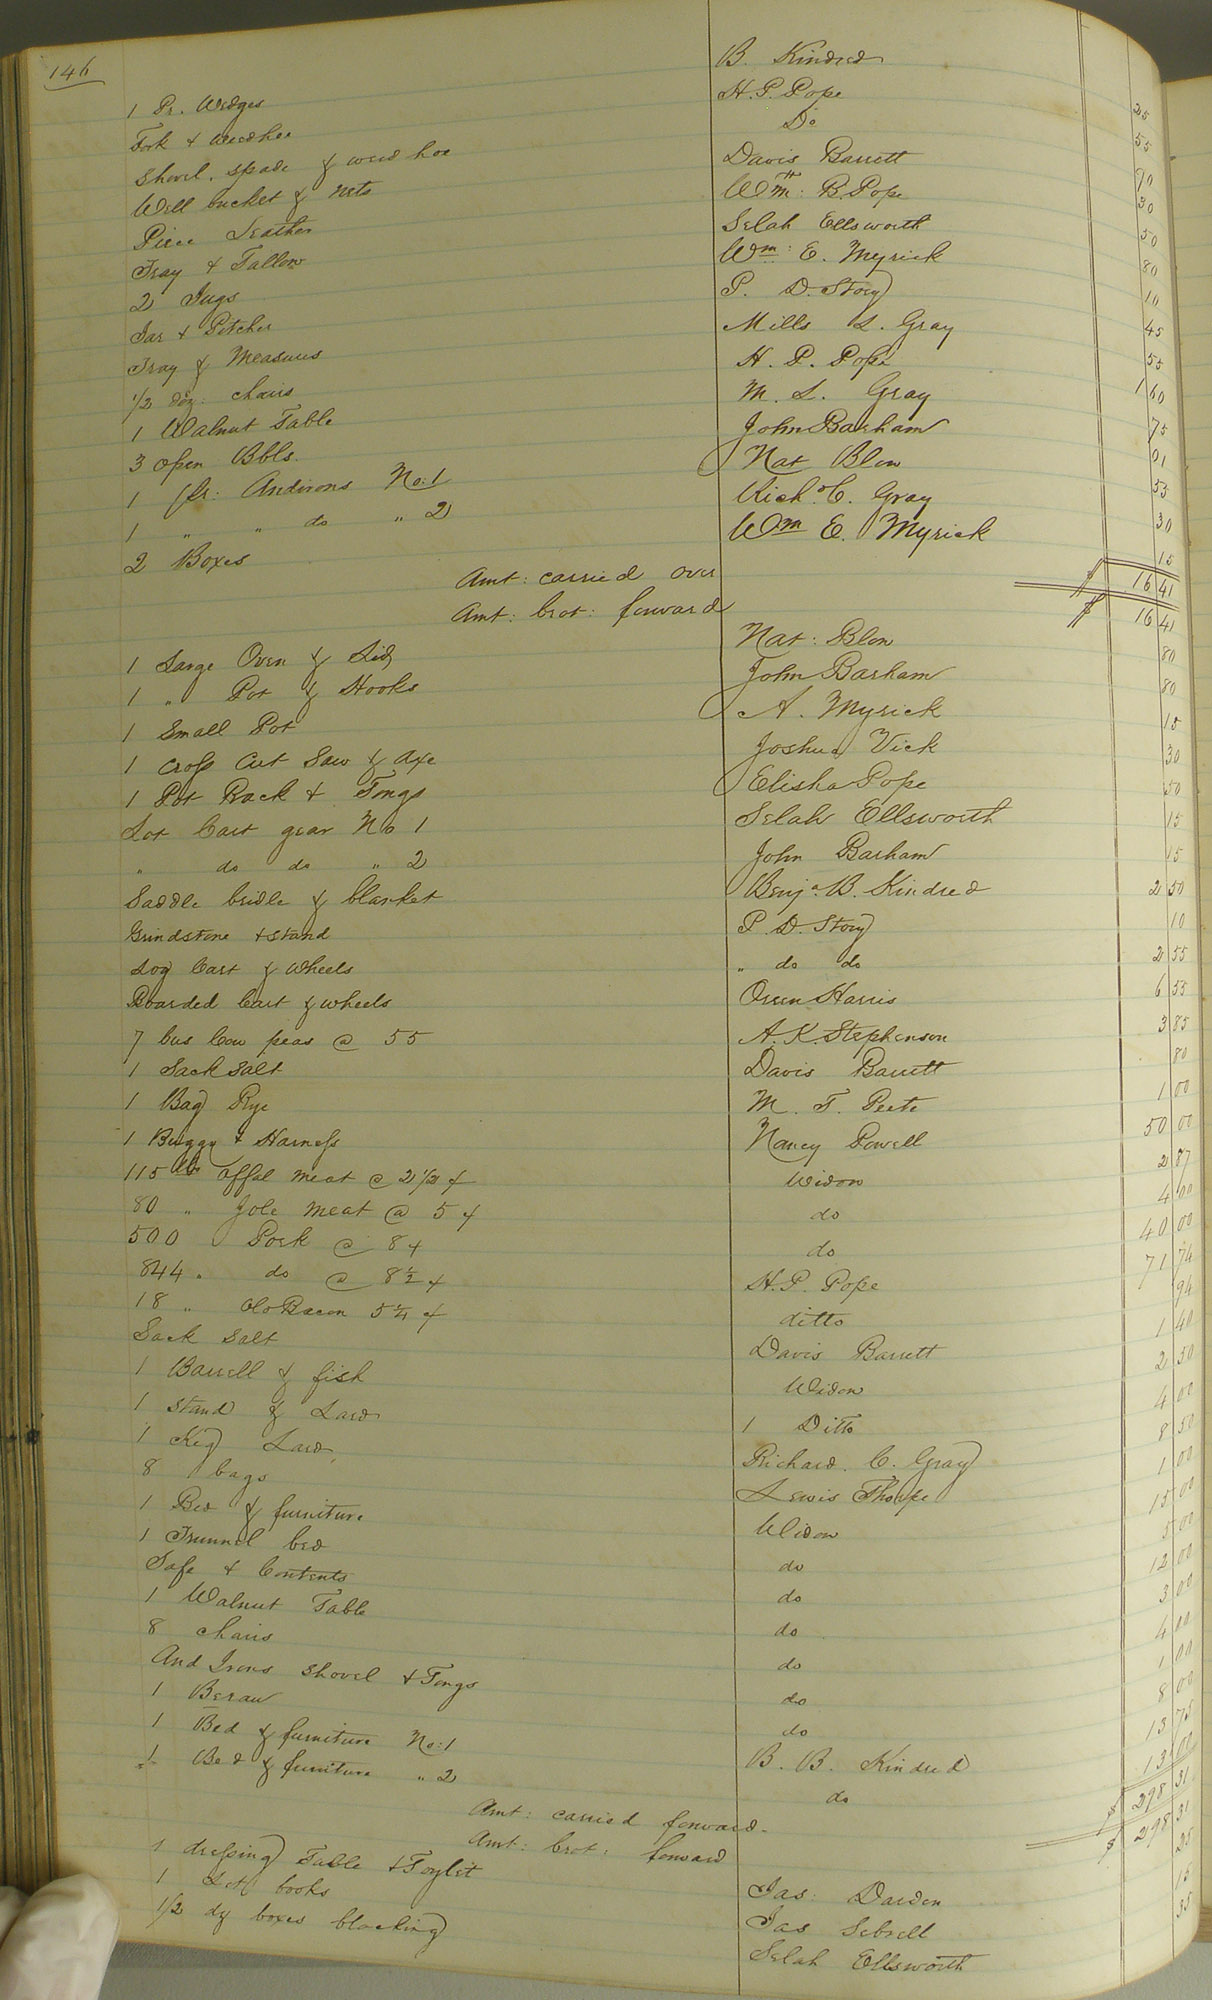 146
1 Pr. Wedges B. Kindred 25
Fork & weedhoe H. P. Pope 55
Shovel, spade & weed hoe Do 70
Well bucket & nets Davis Barrett 30
Piece Leather Wm: H B. Pope 50
Tray & Tallow Selah Ellsworth 80
2 Jugs Wm: E. Myrick 10
Jar & Pitcher P. D. Story 45
Tray & Measures Mills L. Gray 55
1/2 doz: chairs H. P. Pope 1 60
1 Walnut Table M. L. Gray 75
3 open Bbls. John Barham 01
1 Pr: Andirons No: 1 Nat Blow 55
1 " do " 2 Rich. C. Gray 30
2 Boxes Wm E. Myrick 15
Amt: carried over $ 16 41
Amt: brot: forward $ 16 41
1 Large Oven & Lid Nat: Blow 80
1 " Pot & Hooks John Barham 80
1 Small Pot A. Myrick 15
1 Cross Cut Saw & Axe Joshua Vick 30
1 Pot Rack & Tongs Elisha Pope 50
Lot Cart gear No 1 Selah Ellsworth 15
" do do " 2 John Barham 15
Saddle bridle & blanket Benja. B. Kindred 2 50
Grindstone & stand P. D. Story 10
Log Cart & Wheels " do do 2 55
Boarded Cart & wheels Orren Harris 6 55
7 bus Cow peas @ 55 A. K. Stephenson 3 85
1 Sack Salt Davis Barrett 80
1 Bag Rye M. T. Peete 1 00
1 Buggy & Harness Nancy Powell 50 00
115 lbs offal meat @ 2 1/2 ¢ Widow 2 87
80 " Jole meat @ 5 ¢ do 4 00
500 Pork @ 8 ¢ do 40 00
844 " do @ 8 1/2 ¢ H. P. Pope 71 74
18 " Old Bacon 5 1/4 ¢ ditto 94
Sack Salt Davis Barrett 1 40
1 Barrell & fish Widow 2 50
1 Stand & Lard 1 Ditto 4 00
1 Keg Lard Richard. C. Gray 8 50
8 bags Lewis Thorpe 1 00
1 Bed & furniture Widow 15 00
1 Trunnel bed do 5 00
Safe & Contents do 12 00
1 Walnut Table do 3 00
8 chairs do 4 00
And Irons shovel & Tongs do 1 00
1 Beraw do 8 00
1 Bed & furniture No: 1 B. B. Kindred 13 75
1 Bed & furniture " 2 do 13 00
Amt: carried forward. $ 298 31
Amt: brot: forward $ 298 31
1 dressing Table & Toylit Jas: Darden 25
1 Lot books Jas Sebrell 15
1/2 dz boxes blacking Selah Ellsworth 35